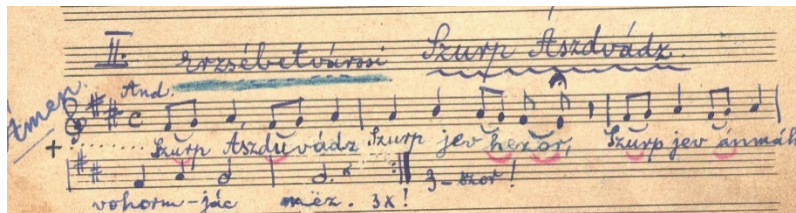 II. Erzsébetvárosi Szurp Ászdvádz.
Ámen
And.
+ Szurp Ászduvádz Szurp jev hezor, Szurp jev ánmáh
vohorm-jác méz. 3x! 3-szor!